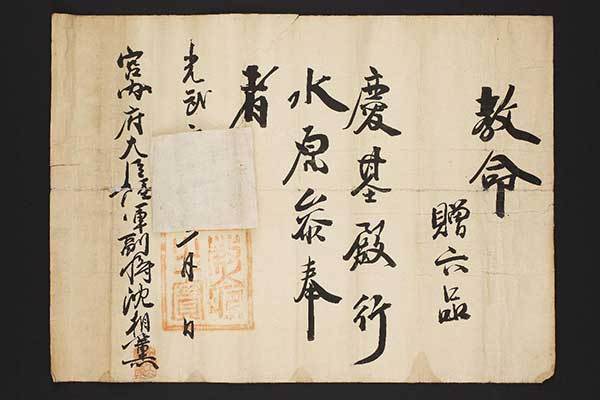 敎命
贈六品
慶基殿行
水原叅奉
者
光武 月 日
宮內府大臣陸軍副將沈相薰